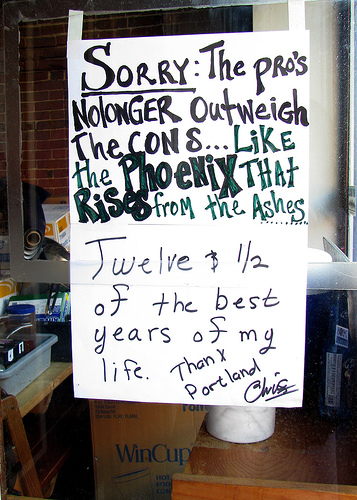 SORRY: The PRO'S
NO LONGER Outweigh
The CONS... LiKE
the PhoeNiX THAT
RiSes from the Ashes
......
Twelve $ 1/2
of the best
years of my
life. Thanx
Portland
Chriss
WinCup